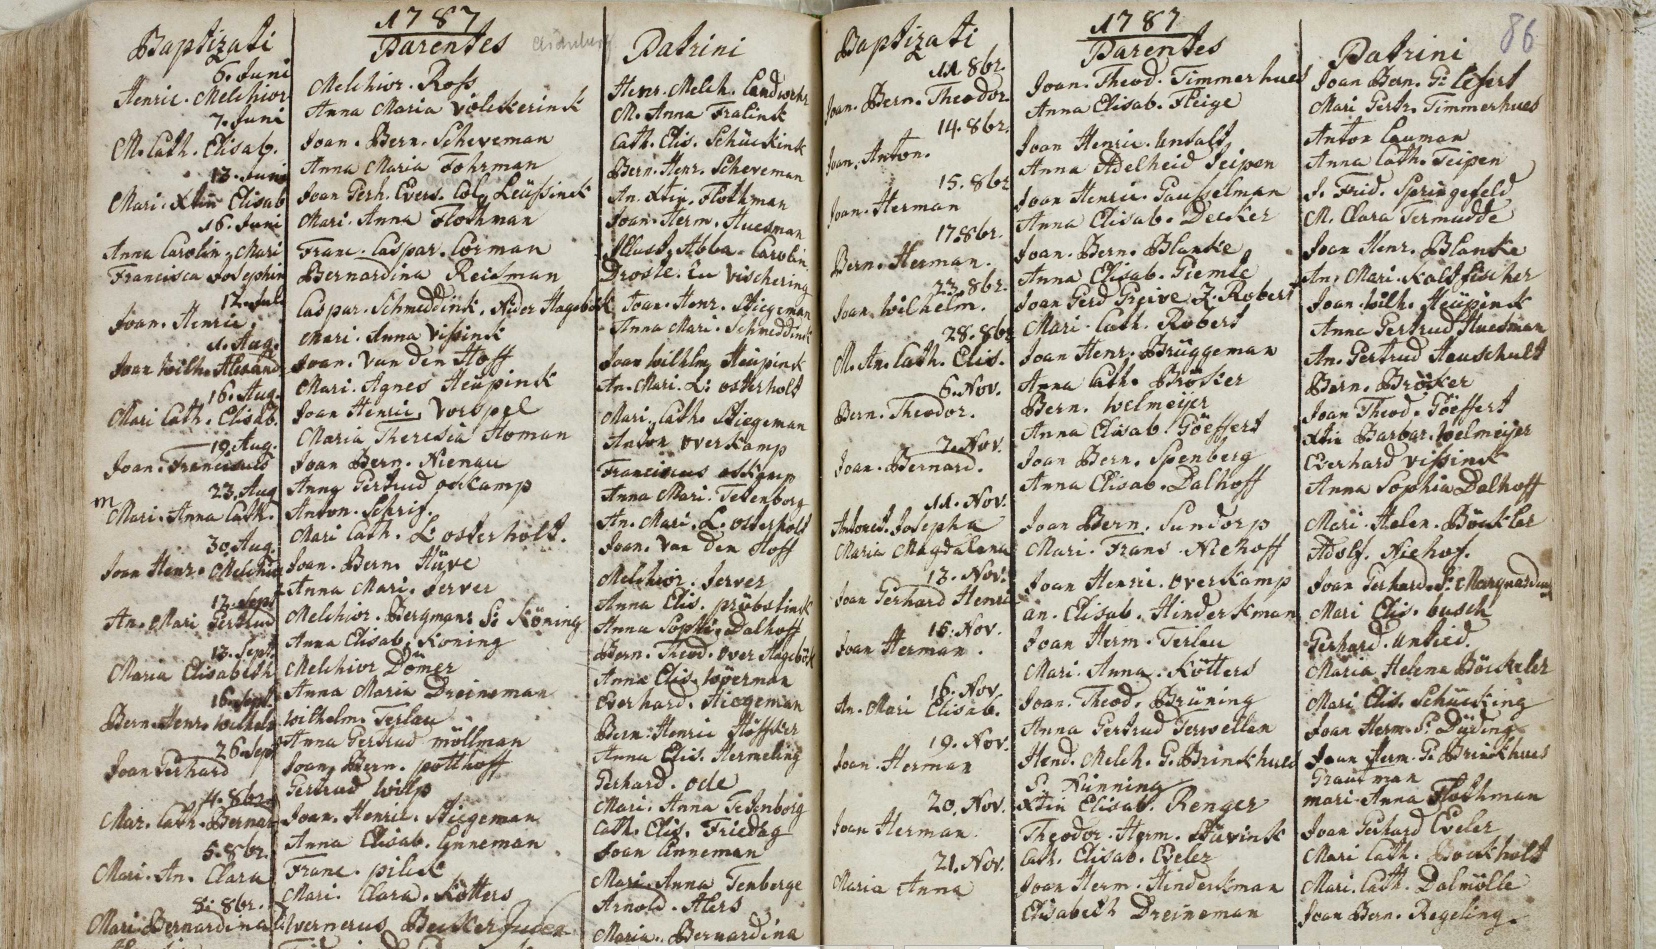 1787
Baptizati
Parentes
Patrini
6. Juni
Henric. Melchior
Melchior. Ross
Anna Maria Volckerinck
Henr. Melch. Landwehr
M. Anna Fralinck
7. Juni
M. Cath. Elisab.
Joan. Bern. Scheveman
Anna Maria Fohrman
Cath. Elis. Schückink
Bern. Henr. Scheveman
13. Juni
Mari. Xtin Elisab
Joan Gerh. Evers. Col. Leüssinck
Mari. Anna Flothman
An. Xtin. Flothman
Joan. Herm. Huesman
16. Juni
Anna Carolin. Mari
Francisca Josephin
Franc. Caspar. Corman
Bernardina Reisman
Abba. Carolin.
Droste. zu Vischering
12. Juli
Joan. Henric.
Caspar. Schmeddinck.
Mari. Anna Vissinck
Joan. Henr. Stiegeman
Anna Mari. Schmeddink
1. Aug.
Joan Wilh. Alexand
Joan. Van den Hoff
Mari. Agnes Heüpinck
Joan Wilhlm. Heüpinck
An. Mari. L: osterholt
16. Aug.
Mari Cath. Elisab.
Joan Henric. Vorspel
Maria Theresia Homan
Mari. Cath. Stiegeman
Anton Overkamp
19. Aug.
Joan. Franciscus
Joan Bern. Nienau
Anna Gertrud
Franciscus
Anna Mari. Tetenborg
23. Aug
m
Mari. Anna Cath.
Anton. Schrif.
Mari Cath. L: osterholt.
An. Mari. L. osterholt
Joan. Van den Hoff
30. Aug.
Joan Henr. Melchior
Joan. Bern. Hüve
Anna Mari. Server
Melchior. Server
Anna Elis. pröbstinck
12. Sept
An. Mari Gertrud
Melchior. Bergman S: Köning
Anna Elisab. Koning
Anna Soph. Dalhoff
Bern. Theod. Over Hageböck
13. Sept.
Maria Elisabeth
Melchior Dömer
Anna Maria Dreineman
Anna Elis.
Everhard. Stiegeman
16. Sept.
Bern. Henr. Wilhelm
Wilhelm. Terlau
Anna Gertrud möllman
Bern. Henric Höffker
Anna Elis. Hermeling
26. Sept
Joan Gerhard
Joan. Bern. potthoff
Gertrud Wilp
Gerhard. Ode
Mari. Anna Tetenborg
4. 8br.
Mar. Cath. Bernar
Joan. Henric. Stiegeman
Anna Elisab. Enneman
Cath. Elis. Friedag
Joan Enneman
5. 8br.
Mari. An. Clara
Franc. pilick
Mari. Clara. Kötters
Mari. Anna Tenberge
Arnold. Alers
8. 8br.
Mari Bernardina
Wernerus Becker
Maria. Bernardina
86
1787
Baptizati
Parentes
Patrini
11. 8br.
Joan. Bern. Theodor.
Joan. Theod. Timmerhues
Anna Elisab. Fleige
Joan Bern.
Mari Gertr. Timmerhues
14. 8br.
Joan. Anton.
Joan Henric. Unsalt
Anna Adelheid Seipen
Anton Lauman
Anna Cath. Seipen
15. 8br
Joan. Herman
Joan Henric. Gausselman
Anna Elisab. Decker
J. Frid. Springefeld
M. Clara Termudde
17. 8br.
Bern. Herman.
Joan. Bern. Blanke
Anna Elisab. Siemte
Joan Henr. Blancke
An. Mari. Kaltfischer
23. 8br.
Joan Wilhelm.
Joan Gerd Greive Z. Robert
Mari. Cath. Robert
Joan. Wilh. Heüpinck
Anna Gertrud Huesman
28. 8br
M. An. Cath. Elis.
Joan Henr. Brüggeman
Anna Cath. Bröker
An. Gertrud Hauschult
Bern. Bröker
6. Nov.
Bern. Theodor.
Bern. Welmeijer
Anna Elisab. Göeffert
Joan Theod. Göeffert
Xtin Barbar. Welmeijer
7. Nov.
Joan. Bernard.
Joan Bern. Spenberg
Anna Elisab. Dalhoff
Everhard Vissinck
Anna Sophia Dalhoff
11. Nov.
Antonet. Josepha
Maria Magdalena
Joan Bern. Sundorp
Mari. Frans. Niehoff
Mari. Helen. Böckler
Adolf. Niehof.
13. Nov.
Joan Gerhard Henric
Joan Henric. overkamp
an. Elisab. Hinderkman
Joan Gerhard.
Mari Elis. busch
15. Nov.
Joan Herman.
Joan Herm. Terlau
Mari. Anna. Kötters
Gerhard. Untied.
Maria Helena Böckeler
16. Nov.
An. Mari Elisab.
Joan. Theod. Brüning
Anna Gertrud Terwellen
Mari Elis. Schücking
Joan Herm. S. Düding
19. Nov.
Joan. Herman
Hend. Melch. G. Brinckhues
S. Nünning
Xtin Elisab. Renger
Joan Herm. G. Brinckhues
Grautman
mari. Anna Flothman
20. Nov.
Joan Herman.
Theodor. Herm. Stavinck
Cath. Elisab. Eveler
Joan Gerhard Eveler
Mari Cath. Bockholt
21. Nov.
Maria Anna
Joan Herm. Hinderckman
Elisabeth Dreineman
Mari. Cath. Dalmölle
Joan Bern. Regeling.